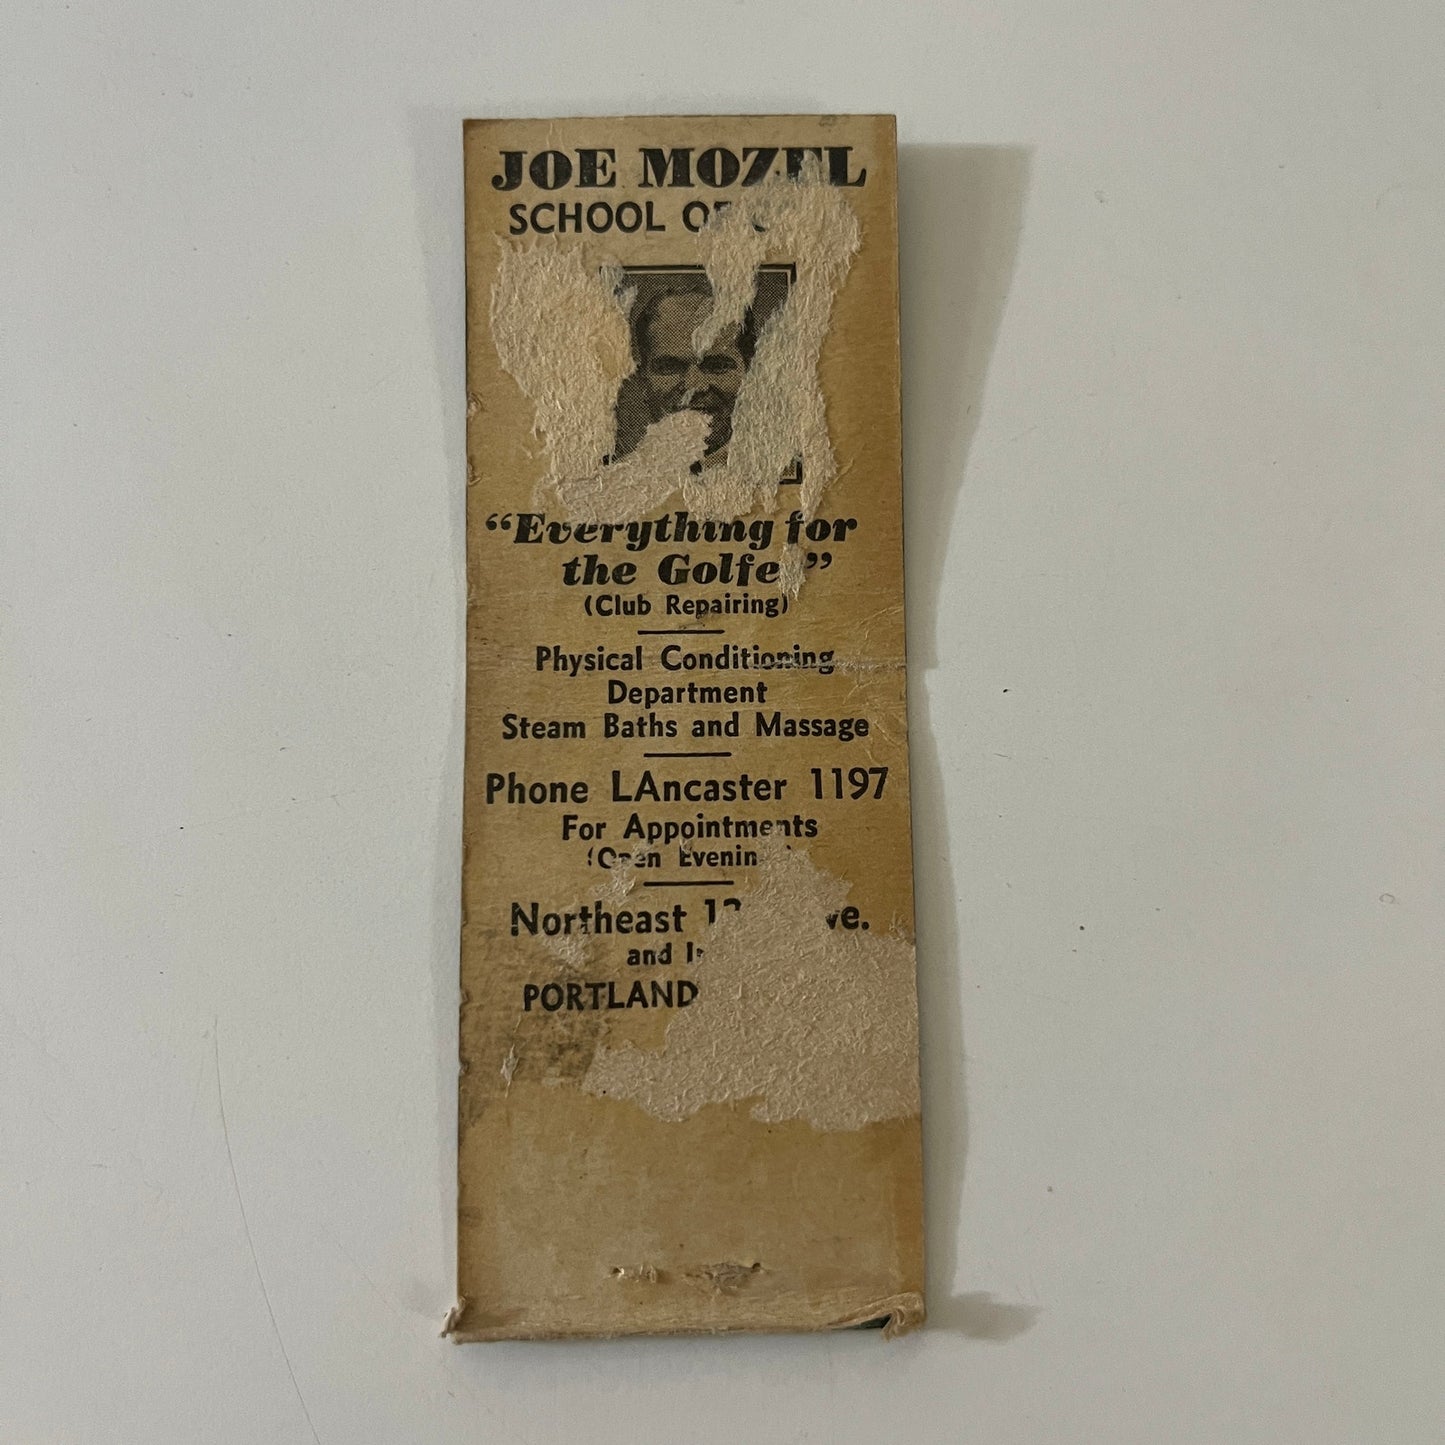 JOE MOZEL
SCHOOL OF
"Everything for
the Golfer"
(Club Repairing)
Physical Conditioning
Department
Steam Baths and Massage
Phone LAncaster 1197
For Appointments
(Open Evenings)
Northeast
and
PORTLAND